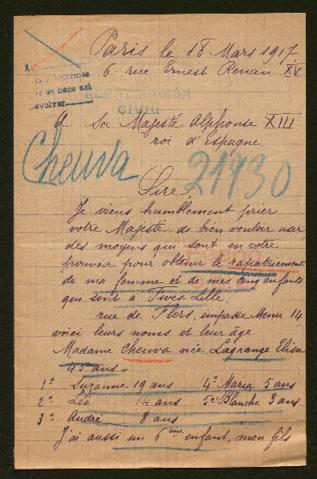 Paris le 18 Mars 1917
6 rue Ernest Renan XV
REPATRIACIÓN
CIVIL
A Sa Majesté Alphonse XIII
roi d'Espagne
Cheuva
21930
Sire,
Je viens humblement prier
votre Majesté de bien vouloir user
des moyens qui sont en votre
pouvoir pour obtenir le rapatriement
de ma femme et de mes cinq enfants
qui sont à Fives-Lille
rue de Flers, impasse Menu 14
voici leurs noms et leur âge
Madame Cheuva née Lagrange Elisa
45 ans
1º Suzanne 19 ans 4º Maria 5 ans
2º Léa 14 ans 5º Blanche 3 ans
3º André 8 ans
J'ai aussi un 6me enfant, mon fils